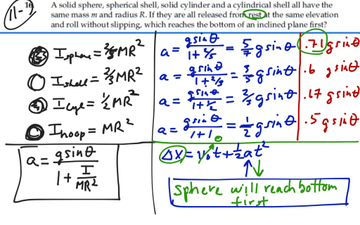 11-26
A solid sphere, spherical shell, solid cylinder and a cylindrical shell all have the
same mass m and radius R. If they are all released from rest at the same elevation
and roll without slipping, which reaches the bottom of an inclined plane first?
I sphere = 2/5 MR² a = gsinθ / 1 + 2/5 = 5/7 gsinθ .71 gsinθ
I shell = 2/3 MR² a = gsinθ / 1 + 2/3 = 3/5 gsinθ .6 gsinθ
I cyl = 1/2 MR² a = gsinθ / 1 + 1/2 = 2/3 gsinθ .67 gsinθ
I hoop = MR² a = gsinθ / 1 + 1 = 1/2 gsinθ .5 gsinθ
a = gsinθ / 1 + I/MR²
Δx = v₀t + 1/2 at²
Sphere will reach bottom
first